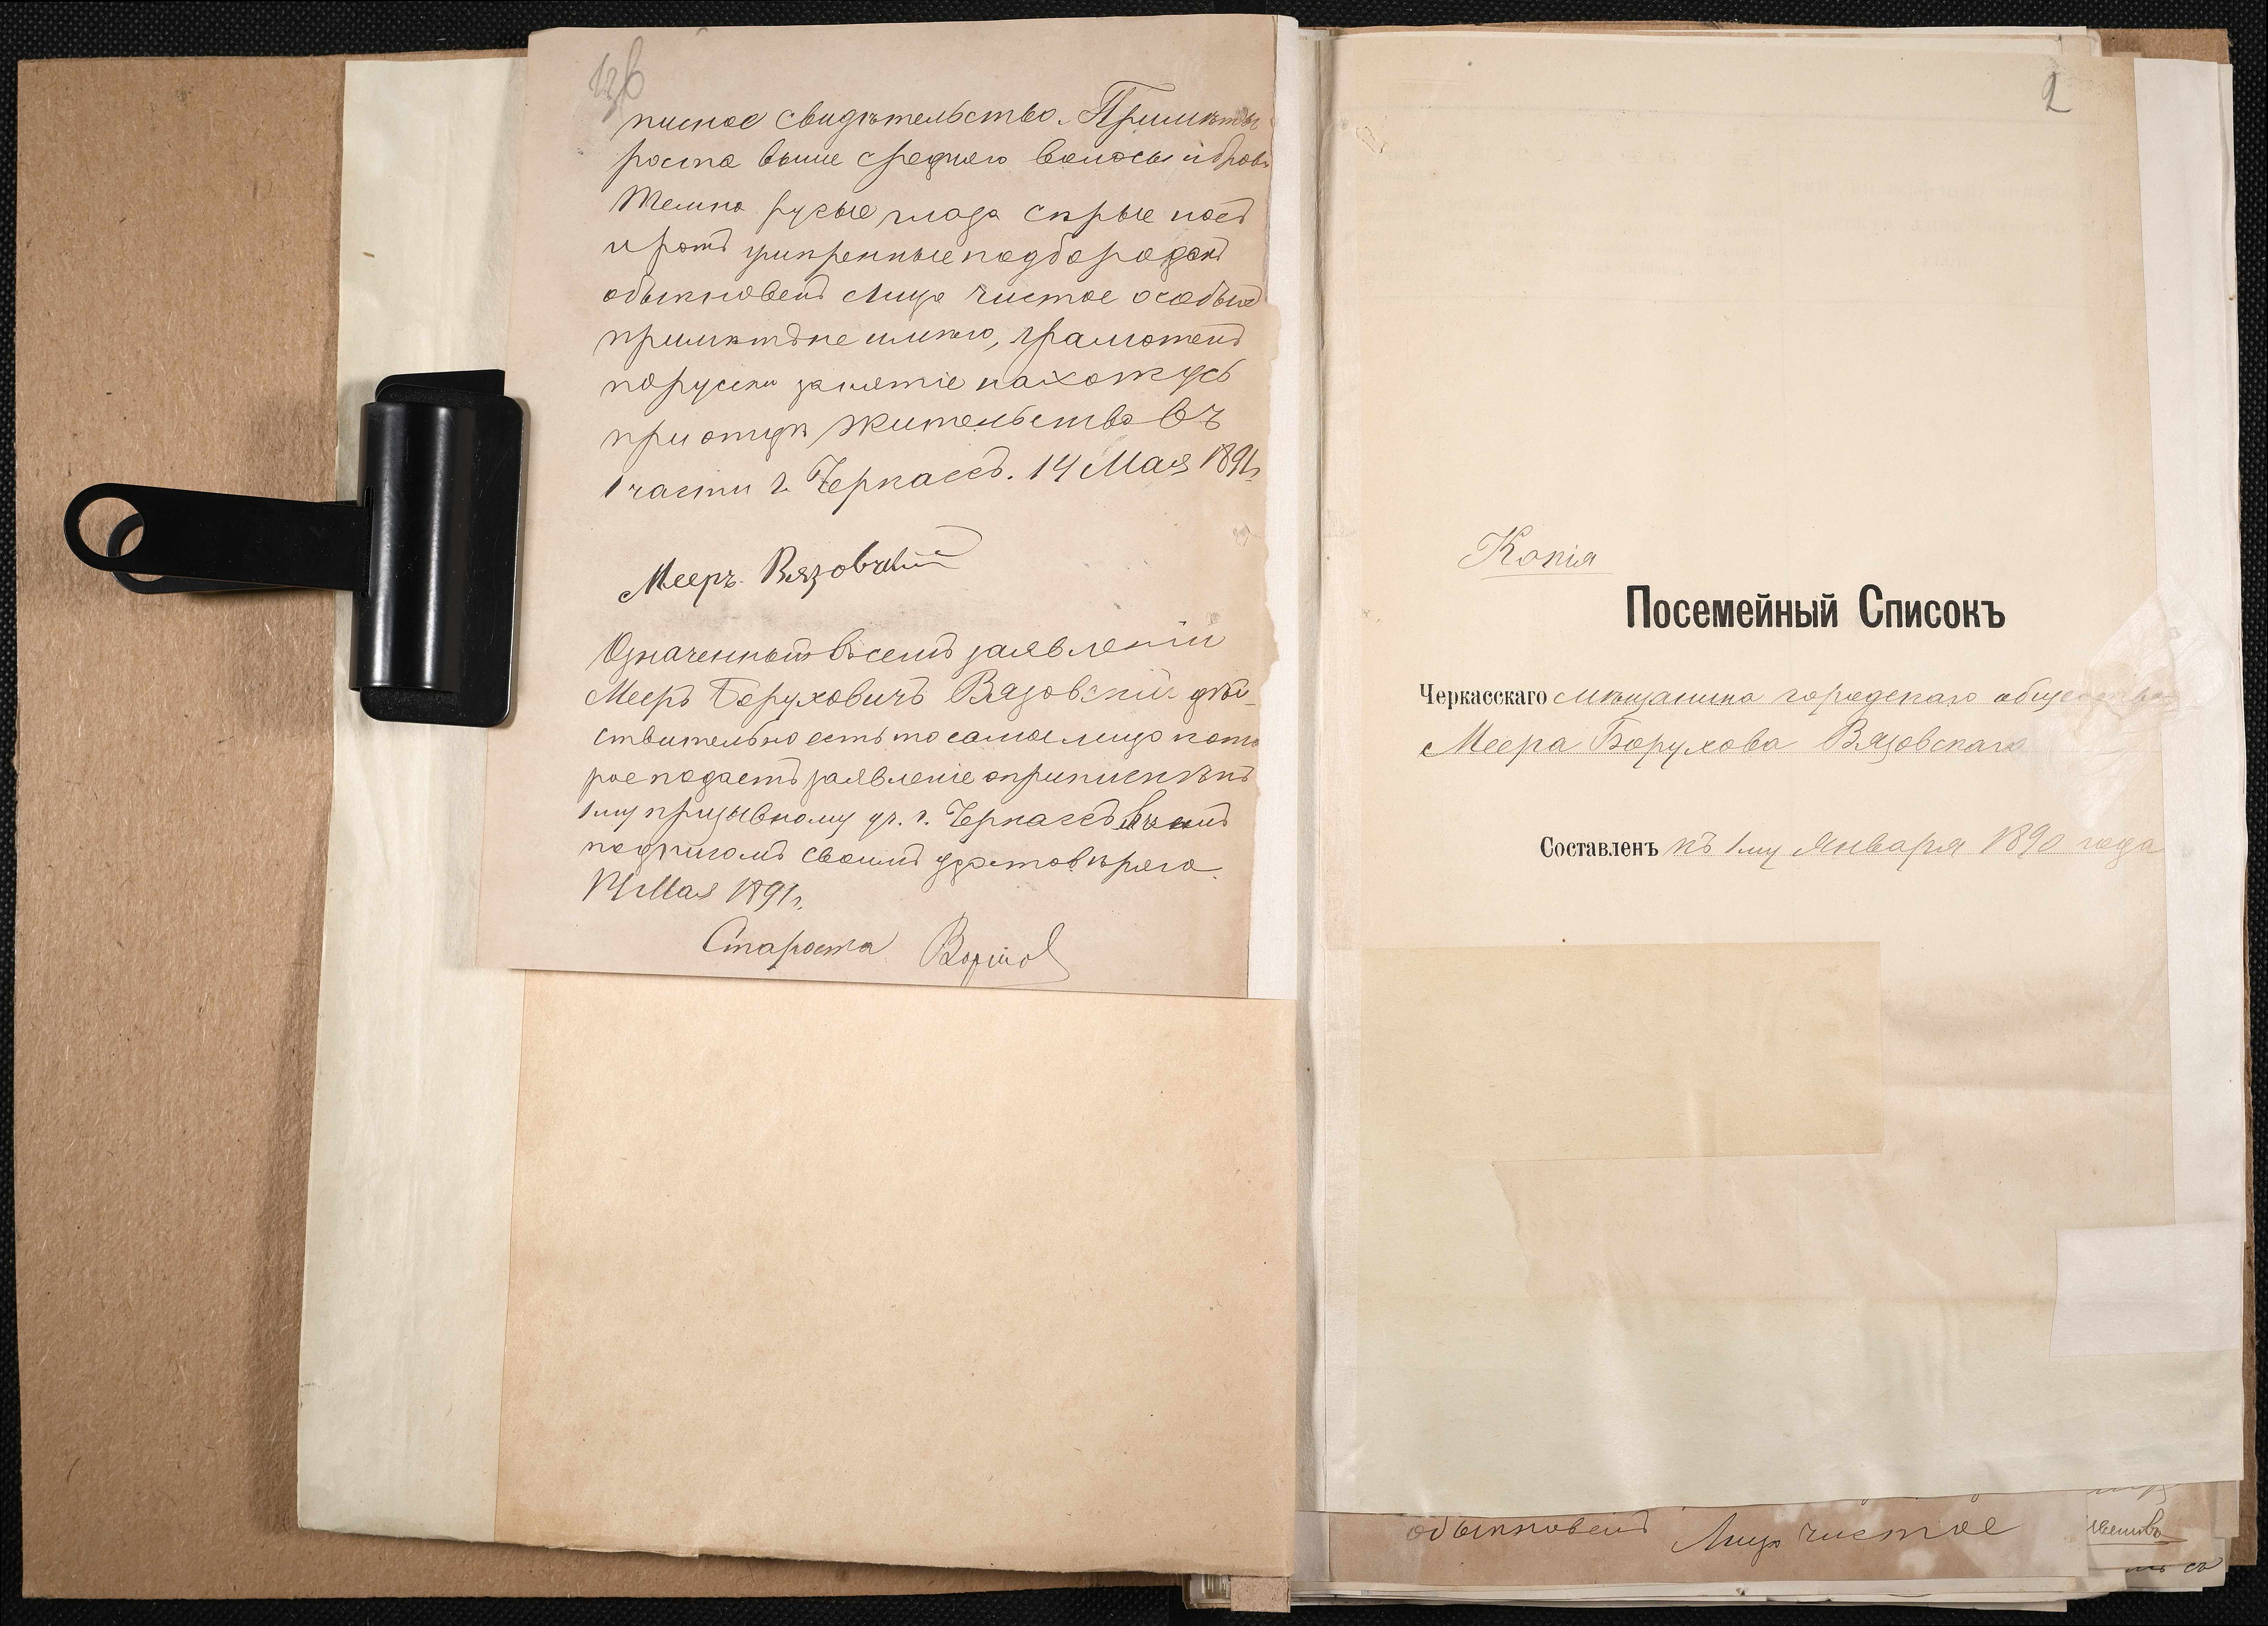 писное свидѣтельство. Примѣты
роста выше средняго волосы и брови
темно русые глаза сѣрые носъ
и ротъ умѣренные подбородокъ
обыкновенъ лицо чистое особыхъ
примѣтъ не имѣю, грамотенъ
порусски занятіе нахожусь
при отцѣ жительство въ
1 части г. Черкассъ. 14 Мая 1891 г.
Мееръ Вязовскій
Означенный въ семъ заявленіи
Мееръ Беруховичъ Вязовскій дѣй-
ствительно есть то самое лицо кото
рое подаетъ заявленіе о припискѣ къ
1му призывному уч. г. Черкассъ въ чемъ
подписомъ своимъ удостовѣряю.
14 Мая 1891 г.
Староста
2
Копія
Посемейный Списокъ
Черкасскаго мѣщанина городскаго общества
Меера Борухова Вязовскаго
Составленъ къ 1му Января 1890 года
обыкновенъ Лицо чистое